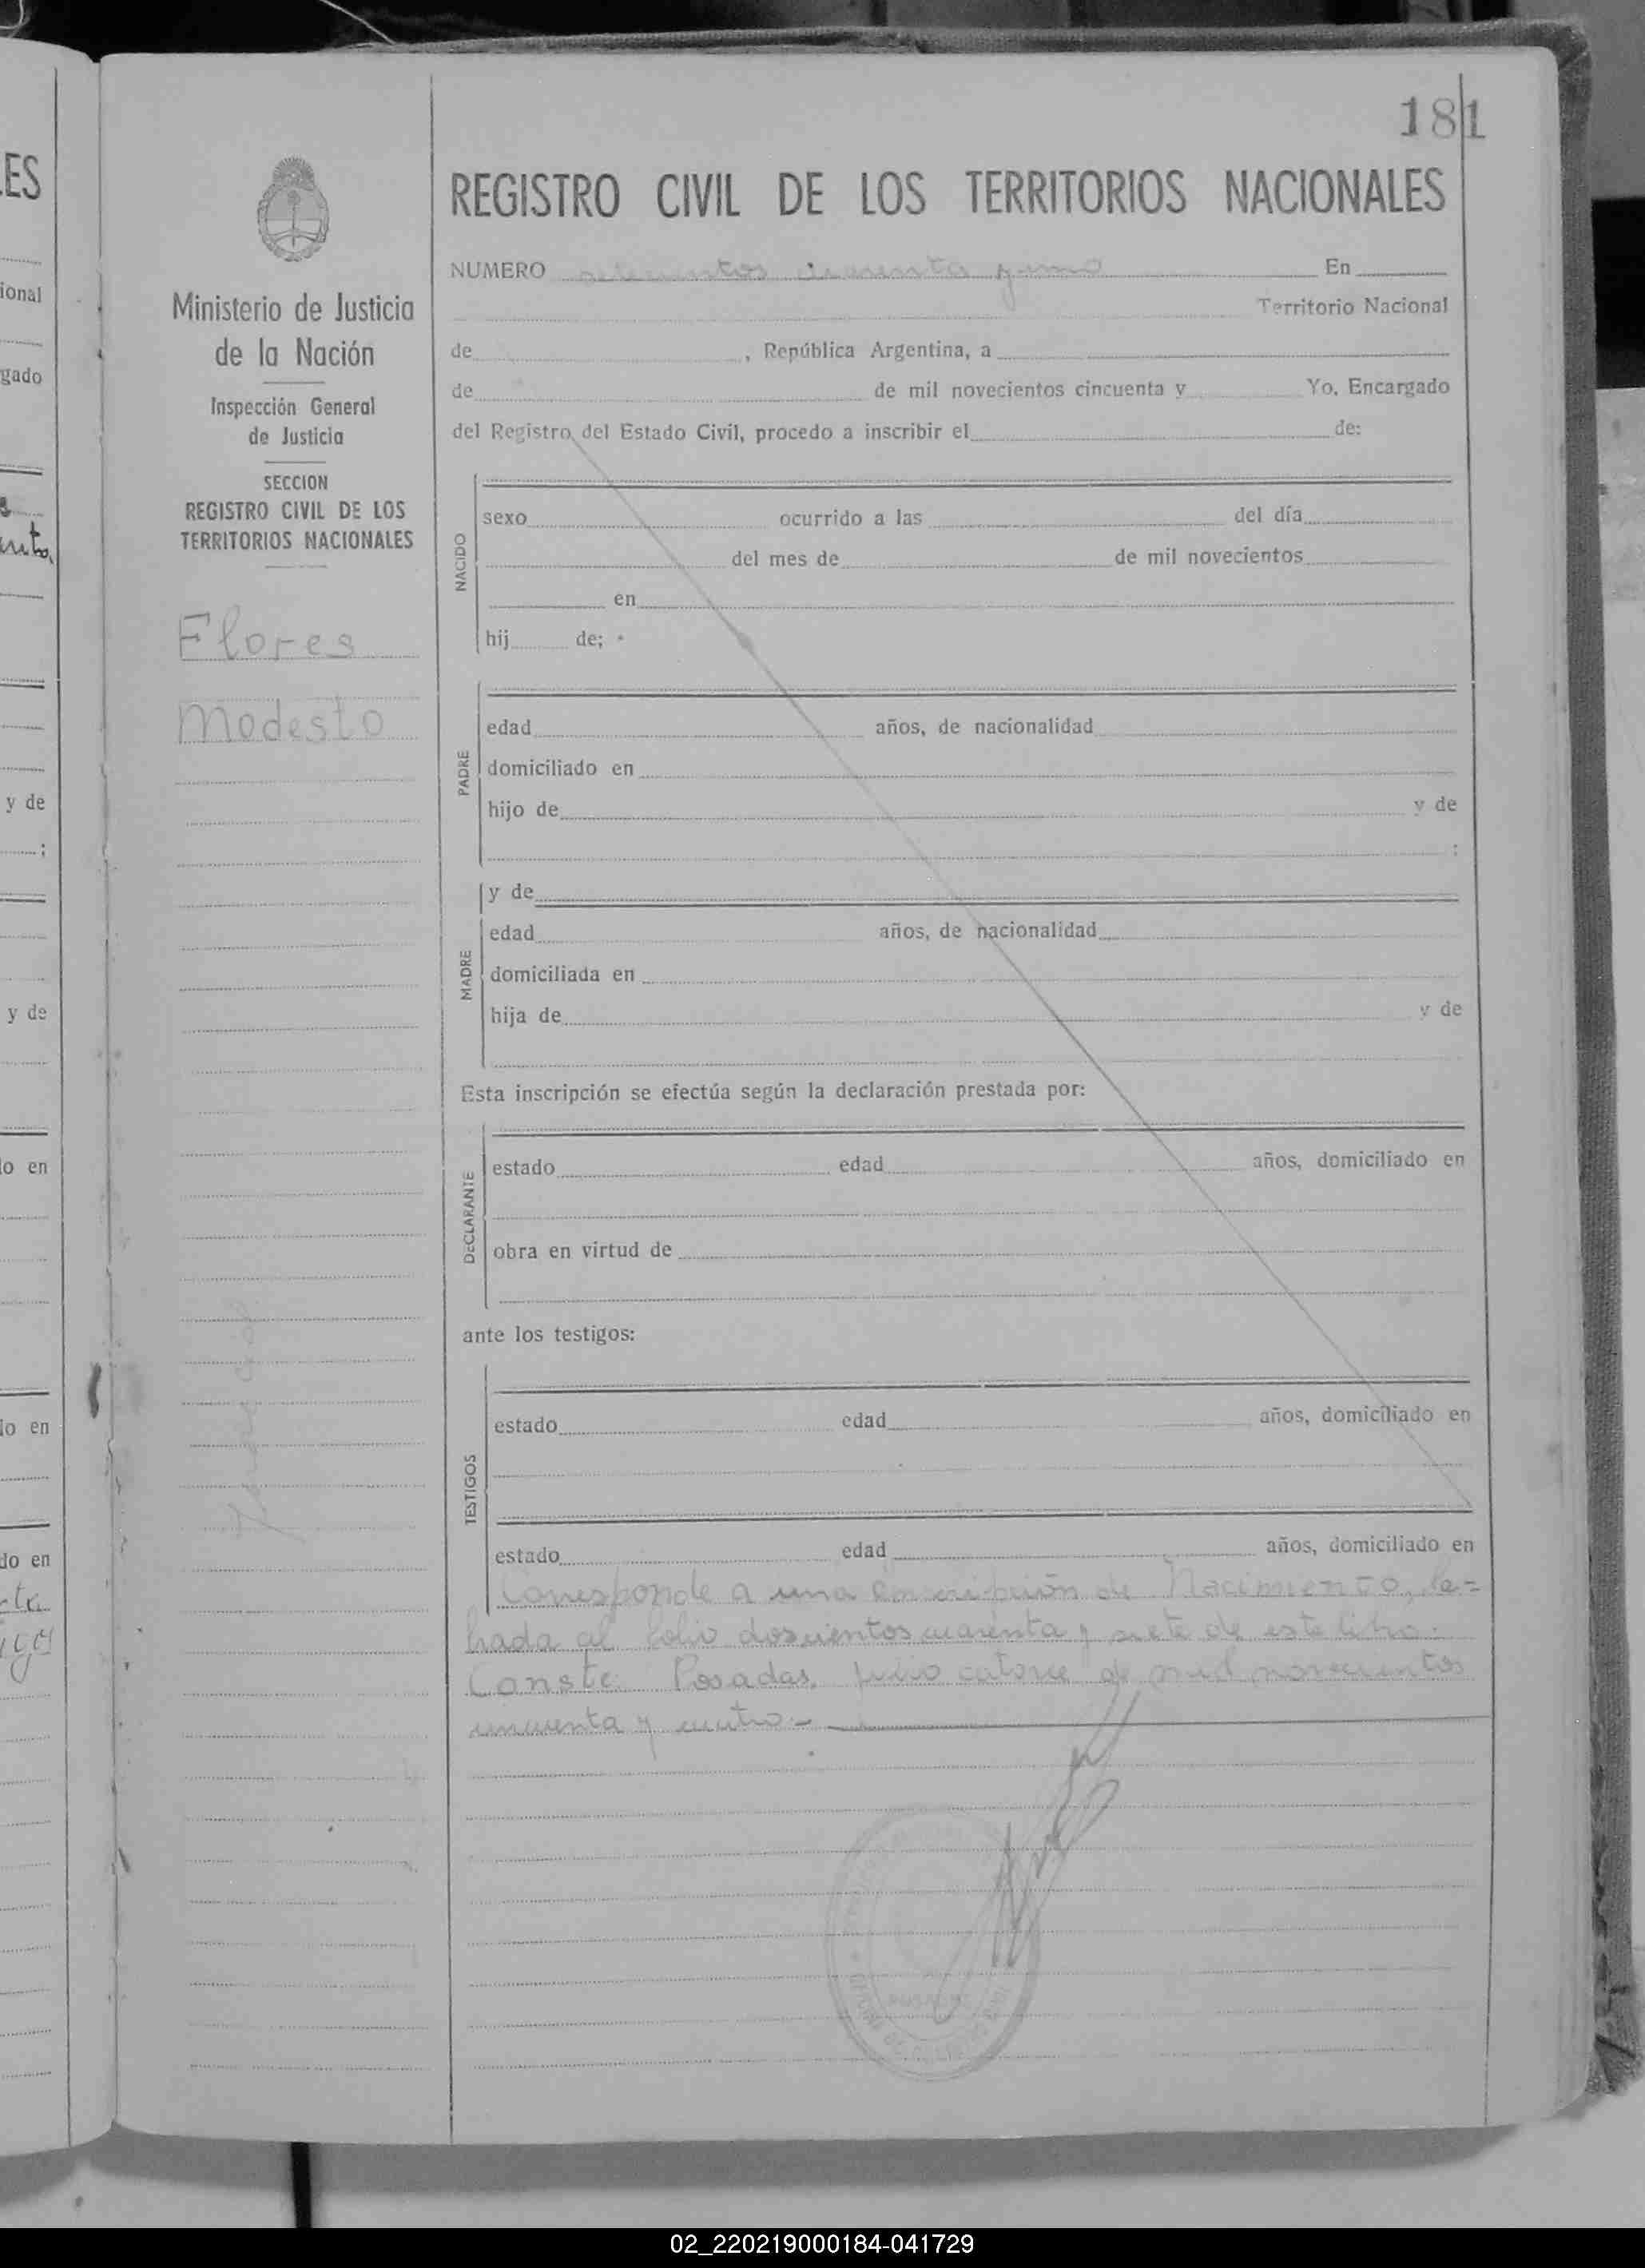 181
REGISTRO CIVIL DE LOS TERRITORIOS NACIONALES
NUMERO setecientos cuarenta y uno En
Territorio Nacional
de , República Argentina, a
de de mil novecientos cincuenta y Yo, Encargado
del Registro del Estado Civil, procedo a inscribir el de:
Ministerio de Justicia
de la Nación
Inspección General
de Justicia
SECCION
REGISTRO CIVIL DE LOS
TERRITORIOS NACIONALES
Flores
Modesto
NACIDO
sexo ocurrido a las del día
del mes de de mil novecientos
en
hij de;
PADRE
edad años, de nacionalidad
domiciliado en
hijo de y de
;
MADRE
y de
edad años, de nacionalidad
domiciliada en
hija de y de
Esta inscripción se efectúa según la declaración prestada por:
DECLARANTE
estado edad años, domiciliado en
obra en virtud de
ante los testigos:
TESTIGOS
estado edad años, domiciliado en
estado edad años, domiciliado en
Corresponde a una inscripción de Nacimiento, la-
brada al folio doscientos cuarenta y siete de este libro.
Conste. Posadas, julio catorce de mil novecientos
cincuenta y cuatro.-
ES
ional
gado
y de
;
y de
lo en
lo en
do en
02_220219000184-041729